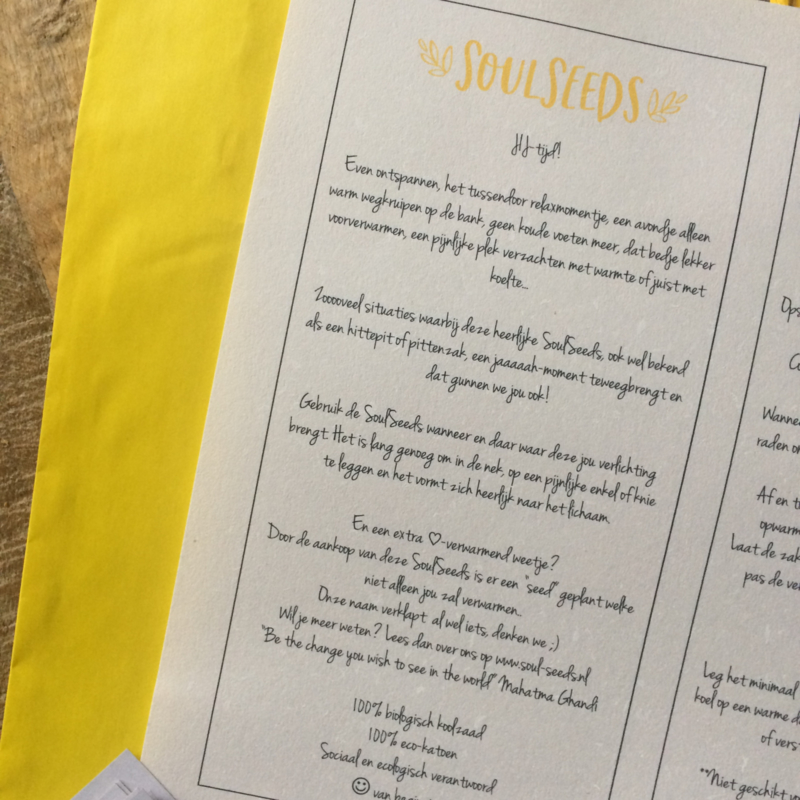 SOULSEEDS
JIJ-tijd!
Even ontspannen, het tussendoor relaxmomentje, een avondje alleen
warm wegkruipen op de bank, geen koude voeten meer, dat bedje lekker
voorverwarmen, een pijnlijke plek verzachten met warmte of juist met
koelte...
Zoooovel situaties waarbij deze heerlijke SoulSeeds, ook wel bekend
als een hittepit of pittenzak, een jaaaaah-moment teweegbrengt en
dat gunnen we jou ook!
Gebruik de SoulSeeds wanneer en daar waar deze jou verlichting
brengt. Het is lang genoeg om in de nek, op een pijnlijke enkel of knie
te leggen en het vormt zich heerlijk naar het lichaam.
En een extra ♡-verwarmend weetje?
Door de aankoop van deze SoulSeeds is er een "seed" geplant welke
niet alleen jou zal verwarmen...
Onze naam verklapt al wel iets, denken we ;)
Wil je meer weten? Lees dan over ons op www.soul-seeds.nl
"Be the change you wish to see in the world" Mahatma Ghandi
100% biologisch koolzaad
100% eco-katoen
Sociaal en ecologisch verantwoord
☺ van
Ops
Wanne
raden o
Af en t
opwarm
Laat de zak
pas de ve
Leg het minimaal
koel op een warme
of vers
**Niet geschikt v